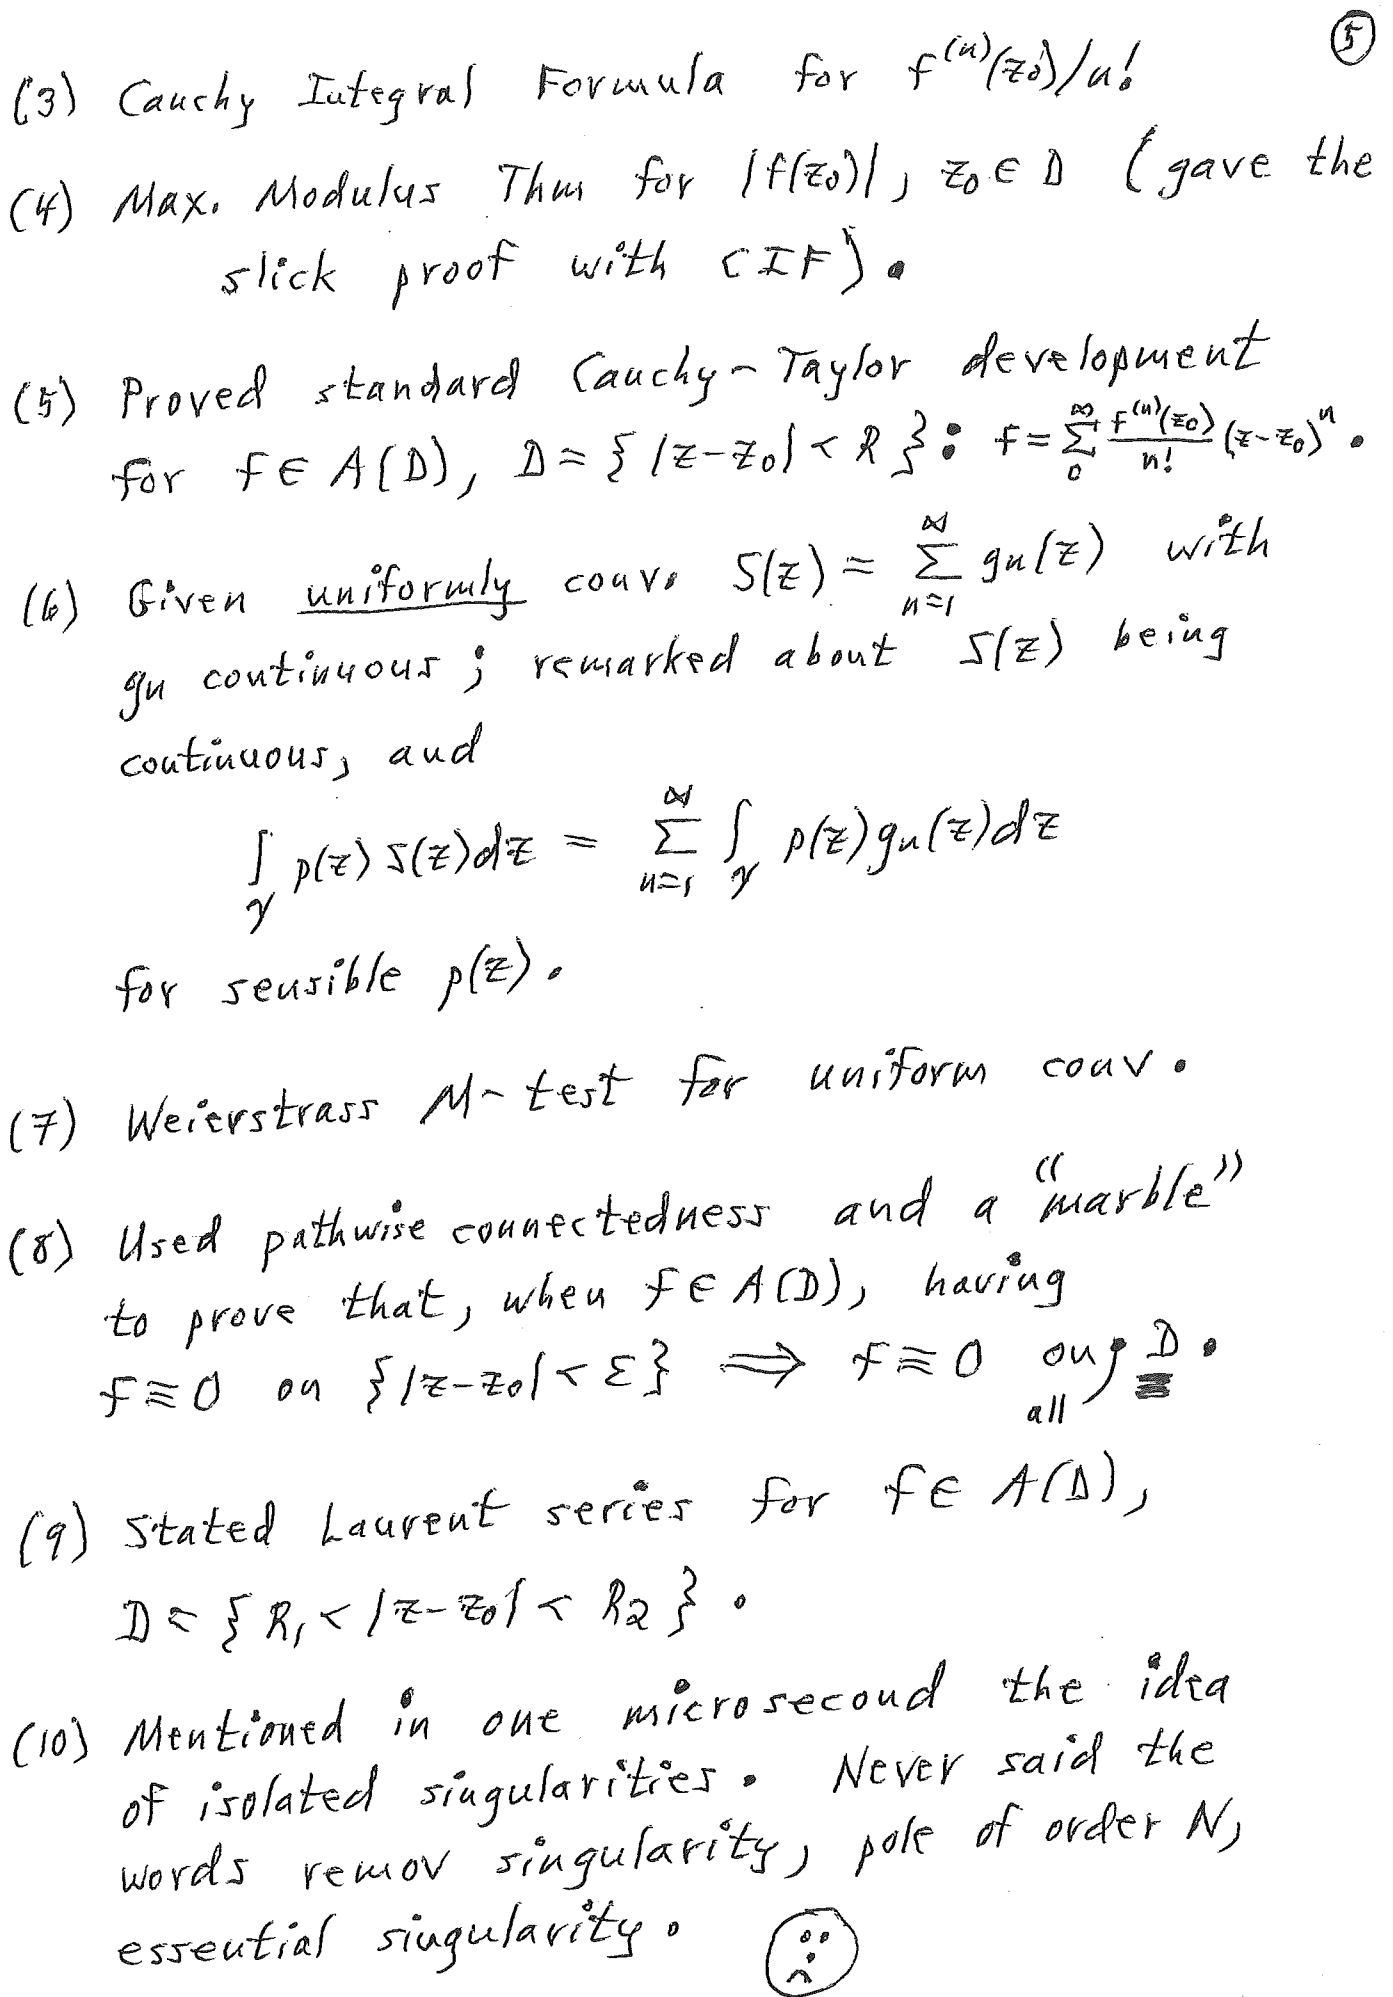 ⑤
(3) Cauchy Integral Formula for f⁽ⁿ⁾(z₀)/n!
(4) Max. Modulus Thm for |f(z₀)|, z₀ ∈ D (gave the
slick proof with CIF).
(5) Proved standard Cauchy-Taylor development
for f ∈ A(D), D = {|z-z₀| < R}: f = ∑₀^∞ f⁽ⁿ⁾(z₀)/n! (z-z₀)ⁿ.
(6) Given uniformly conv. S(z) = ∑_{n=1}^∞ gn(z) with
gn continuous; remarked about S(z) being
continuous, and
∫_γ p(z) S(z)dz = ∑_{n=1}^∞ ∫_γ p(z)gn(z)dz
for sensible p(z).
(7) Weierstrass M-test for uniform conv.
(8) Used pathwise connectedness and a "marble"
to prove that, when f ∈ A(D), having
f ≡ 0 on {|z-z₀| < ε} ⟹ f ≡ 0 on all D.
(9) Stated Laurent series for f ∈ A(D),
D = {R₁ < |z-z₀| < R₂}.
(10) Mentioned in one microsecond the idea
of isolated singularities. Never said the
words remov singularity, pole of order N,
essential singularity.